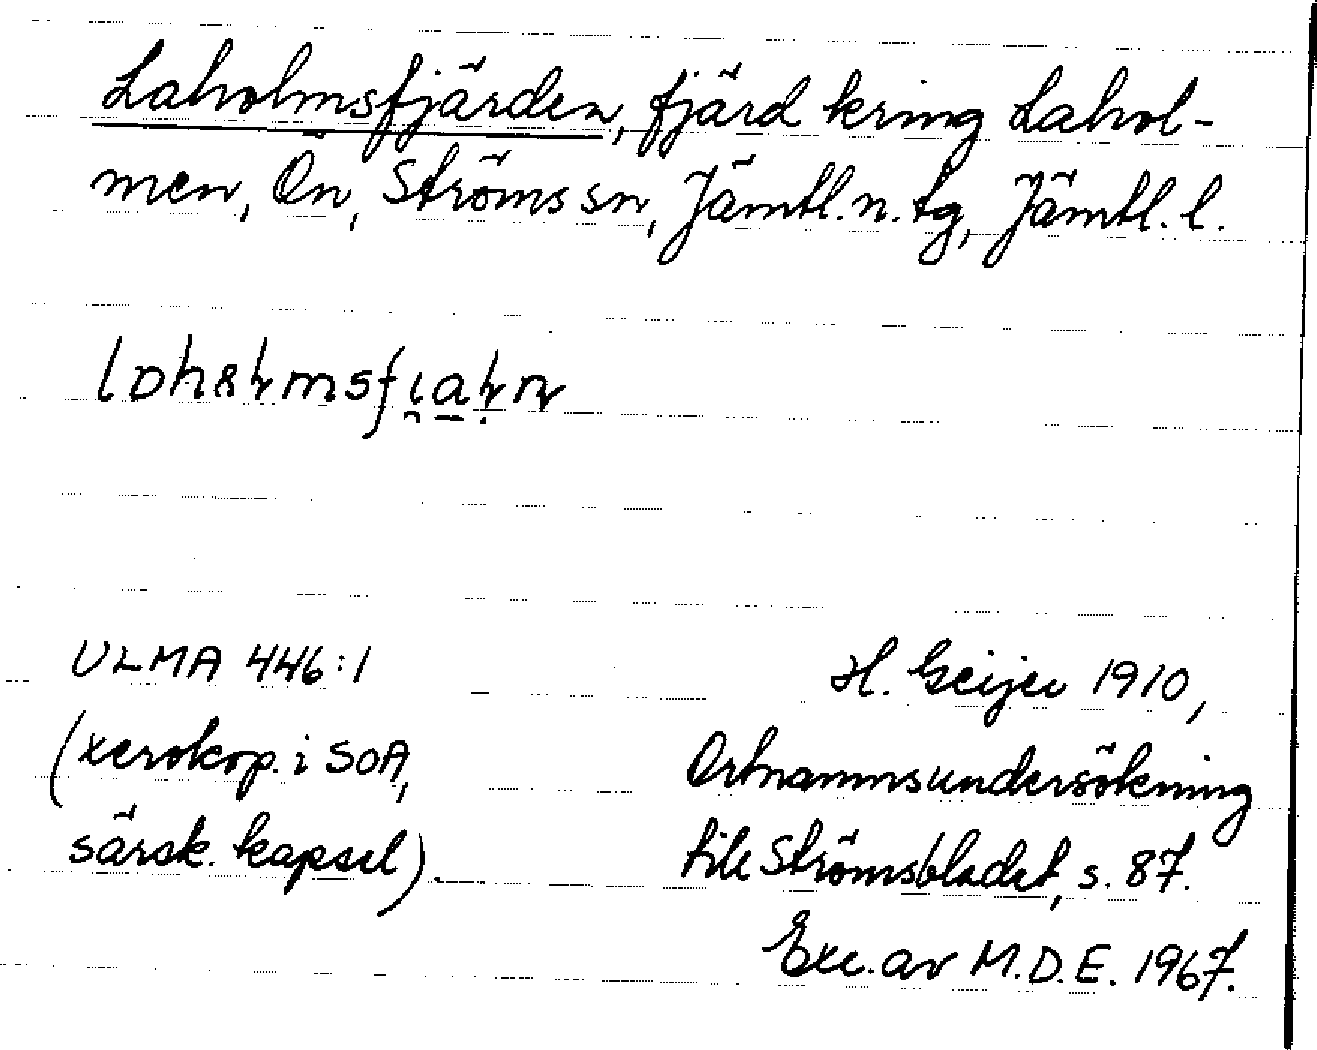 Laholmsfjärden, fjärd kring Lahol-
men, Ön, Ströms sn, Jämtl. n. tg, Jämtl. l.
ULMA 446:1
(xerokop. i SOA,
särsk. kapsel).
H. Geijer 1910,
Ortnamnsundersökning
till Strömsbladet, s. 87.
Exc. av M.D.E. 1967.